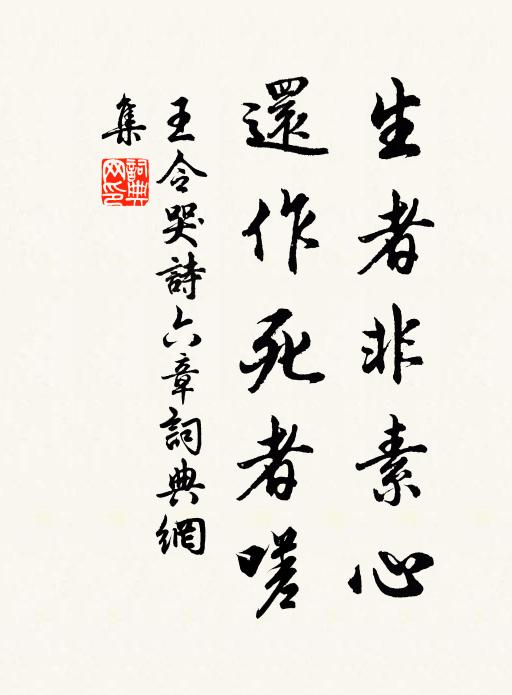 生者非素心
還作死者嗟
王令哭詩六章詞典網
集
詞典
网印